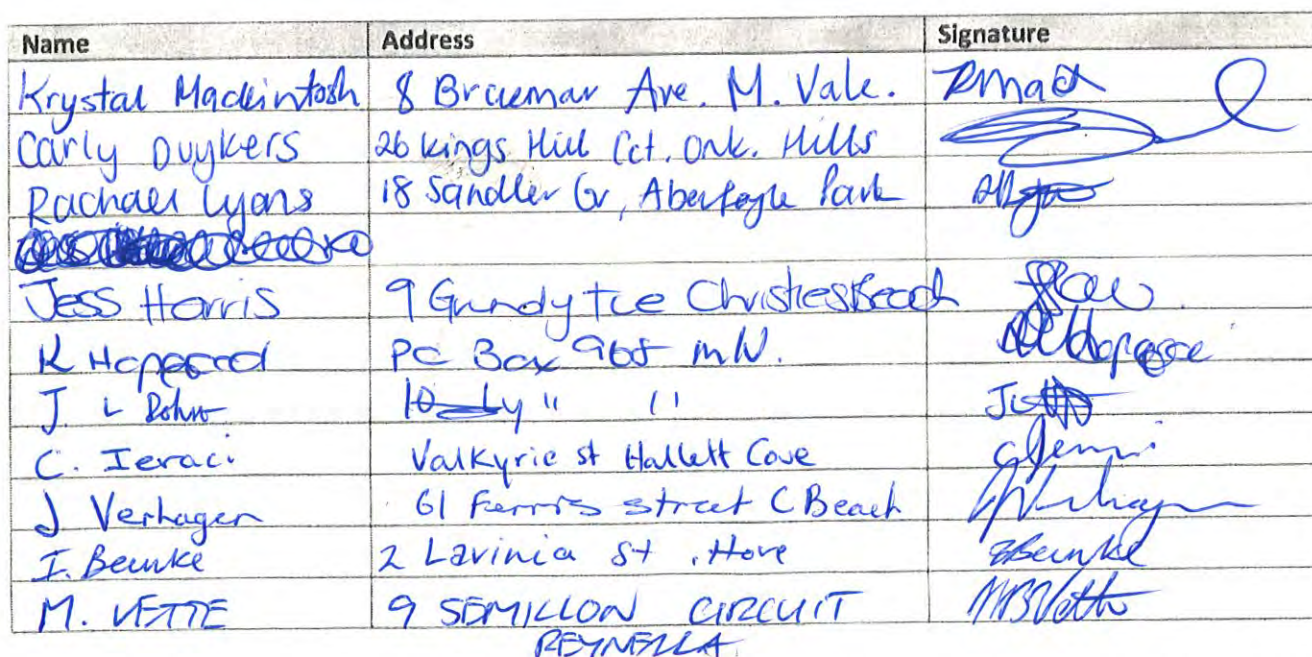 Name Address Signature
Krystal Mackintosh 8 Braemar Ave. M. Vale. KMack
Carly Duykers 26 Kings Hill Cct. Onk. Hills
Rachael Lyons 18 Sandler Gr, Aberfoyle Park
Jess Harris 9 Grundy Tce Christies Beach
K Hopgood PO Box 968 
J L 10 " "
C. Ieraci Valkyrie st Hallett Cove
J Verhagen 61 Ferris street C Beach
I. Beunke 2 Lavinia St , Hove
M. VETTE 9 SEMILLON CIRCUIT MBVette
REYNELLA